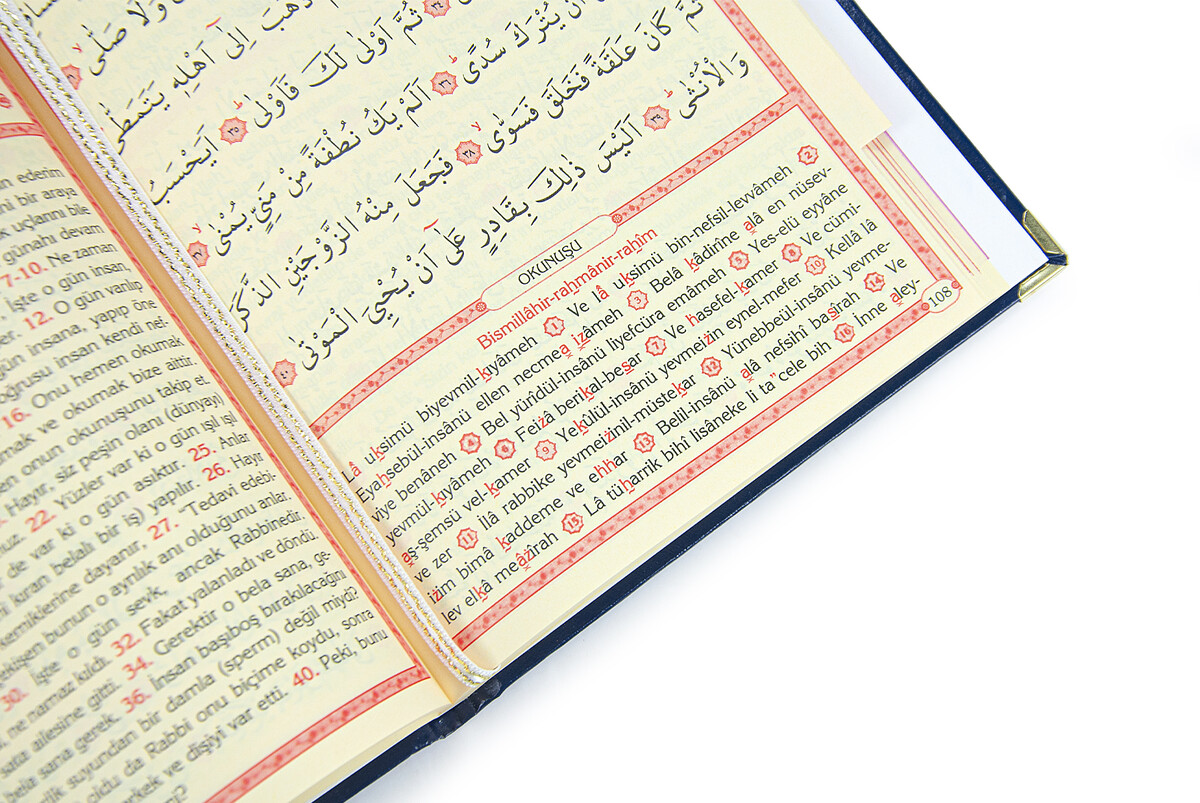 وَلَا صَلّٰى ﴿٣١﴾
ذَهَبَ اِلٰٓى اَهْلِه۪ يَتَمَطّٰى
﴿٣٤﴾ ثُمَّ اَوْلٰى لَكَ فَاَوْلٰى ﴿٣٥﴾ اَيَحْسَبُ
اَنْ يُتْرَكَ سُدًى ﴿٣٦﴾ اَلَمْ يَكُ نُطْفَةً مِنْ مَنِيٍّ يُمْنٰى ﴿٣٧﴾
ثُمَّ كَانَ عَلَقَةً فَخَلَقَ فَسَوّٰى ﴿٣٨﴾ فَجَعَلَ مِنْهُ الزَّوْجَيْنِ الذَّكَرَ
وَالْاُنْثٰى ﴿٣٩﴾ اَلَيْسَ ذٰلِكَ بِقَادِرٍ عَلٰٓى اَنْ يُحْيِيَ الْمَوْتٰى ﴿٤٠﴾
OKUNUŞU
Bismillâhir-raḥmânir-raḥîm
Lâ uksimü biyevmil-kıyâmeh 1 Ve lâ uksimü bin-nefsil-levvâmeh 2
Eyahsebül-insânü ellen necmea izâmeh 3 Belâ kâdirîne alâ en nüsev-
viye benâneh 4 Bel yürîdül-insânü liyefcüra emâmeh 5 Yes-elü eyyâne
yevmül-kıyâmeh 6 Feizâ berikal-besar 7 Ve hasefel-kamer 8 Ve cümi-
aş-şemsü vel-kamer 9 Yekûlül-insânü yevmeizin eynel-mefer 10 Kellâ lâ
ve zer 11 İlâ rabbike yevmeizinil-müstekar 12 Yünebbeül-insânü yevme-
izim bimâ kaddeme ve ehhar 13 Belil-insânü alâ nefsihî basîrah 14 Ve
lev elkâ meâzîrah 15 Lâ tüharrik bihî lisâneke li ta"cele bih 16 İnne aley-
108
n ederim
ni bir araya
k uçlarını bile
günahı devam
7-10. Ne zaman
İşte o gün insan,
er. 12. O gün varılıp
gün insana, yapıp öne
oğrusu insan kendi nef-
16. Onu hemen okumak
mak ve okumak bize aittir.
en onun okunuşunu takip et.
Hayır, siz peşin olanı (dünyayı)
nuz. 22. Yüzler var ki o gün ışıl ışıl
de var ki o gün asıktır. 25. Anlar
i kıran belalı bir iş) yapılır. 26. Hayır
kemiklerine dayanır, 27. "Tedavi edebi-
ekişen bunun o ayrılık anı olduğunu anlar.
30. İşte o gün sevk, ancak Rabbinedir.
ne namaz kıldı. 32. Fakat yalanladı ve döndü.
sata ailesine gitti. 34. Gerektir o bela sana, ge-
bela sana gerek. 36. İnsan başıboş bırakılacağını
ik suyundan bir damla (sperm) değil miydi?
oldu da Rabbi onu biçime koydu, sonra
erkek ve dişiyi var etti. 40. Peki, bunu
mi?